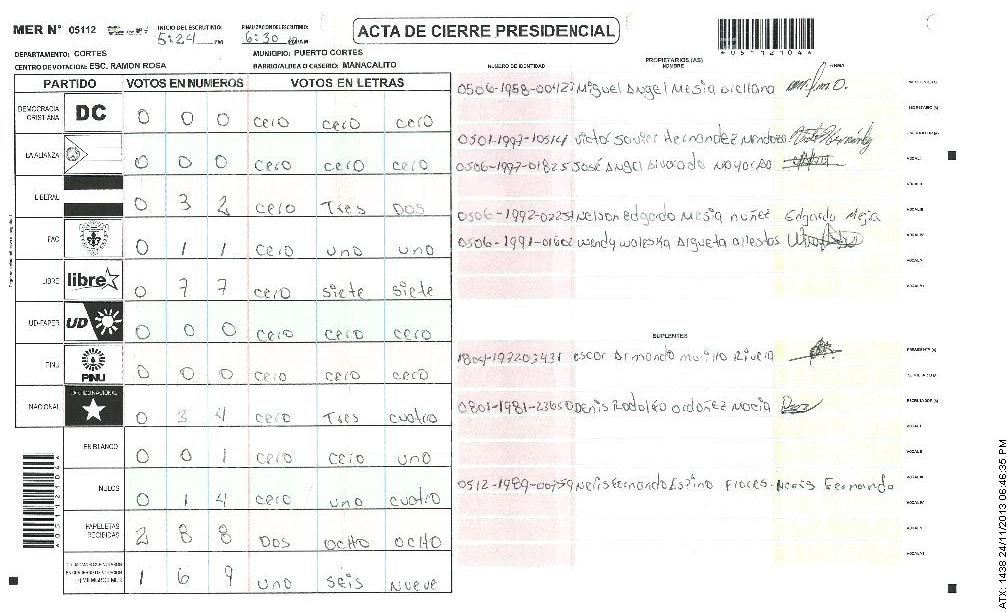 MER N° 05112 INICIO DEL ESCRUTINIO: 5:24 PM FINALIZACION DEL ESCRUTINIO: 6:30 ACTA DE CIERRE PRESIDENCIAL
DEPARTAMENTO: CORTES MUNICIPIO: PUERTO CORTES
CENTRO DE VOTACION: ESC. RAMON ROSA BARRIO/ALDEA O CASERIO: MANACALITO
PARTIDO VOTOS EN NUMEROS VOTOS EN LETRAS
DEMOCRACIA CRISTIANA DC 0 0 0 cero cero cero
LA ALIANZA 0 0 0 cero cero cero
LIBERAL 0 3 2 cero Tres Dos
FAC 0 1 1 cero uno uno
LIBRE libre 0 7 7 cero siete siete
UD-FAPER UD 0 0 0 cero cero cero
PINU PINU 0 0 0 cero cero cero
NACIONAL PARTIDO NACIONAL 0 3 4 cero Tres cuatro
EN BLANCO 0 0 1 cero cero uno
NULOS 0 1 4 cero uno cuatro
PAPELETAS RECIBIDAS 2 8 8 Dos ocho ocho
1 6 9 uno seis nueve
A05112104A
NUMERO DE IDENTIDAD PROPIETARIOS (AS) NOMBRE FIRMA
0506-1958-00427 Miguel Angel Mesia orellana
0501-1997-10514 Victor Hernandez Mendoza
0506-1997-01825 José Angel
0506-1992-02251 Nelson edgardo Mesia nuñez Edgardo Mejia
0506-1991-01602 wendy waleska Argueta
SUPLENTES
Armando Rivera
0801-1981-23650 Denis Rodolfo ordoñez
0512-1989-00759 Neris Fernando Flores Neris Fernando
A05112104A
ATX: 1438 24/11/2013 06:46:35 PM